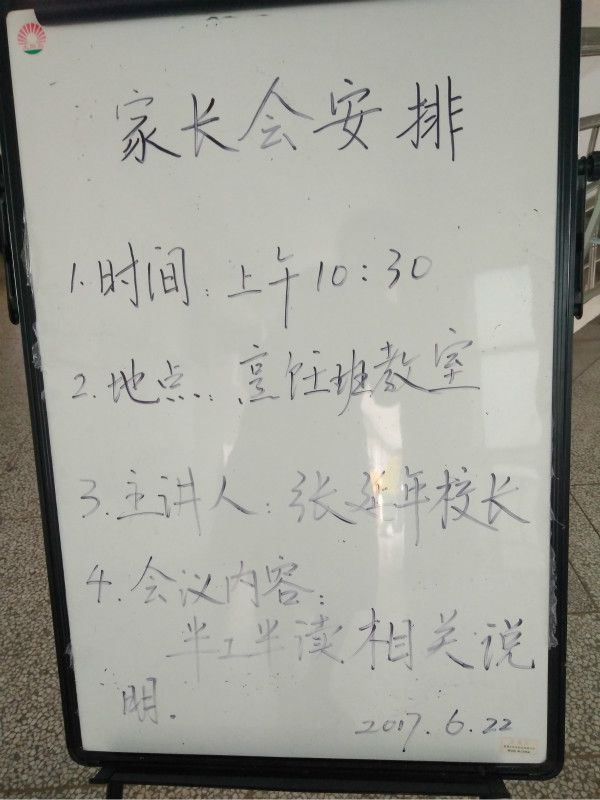 家长会安排
1.时间：上午10:30
2.地点：烹饪班教室
3.主讲人：张延年校长
4.会议内容：
半工半读相关说
明.
2017.6.22